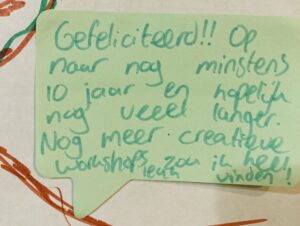 Gefeliciteerd!! Op
naar nog minstens
10 jaar en hopelijk
nog veeel langer.
Nog meer creatieve
workshops zou ik heel
leuk vinden!